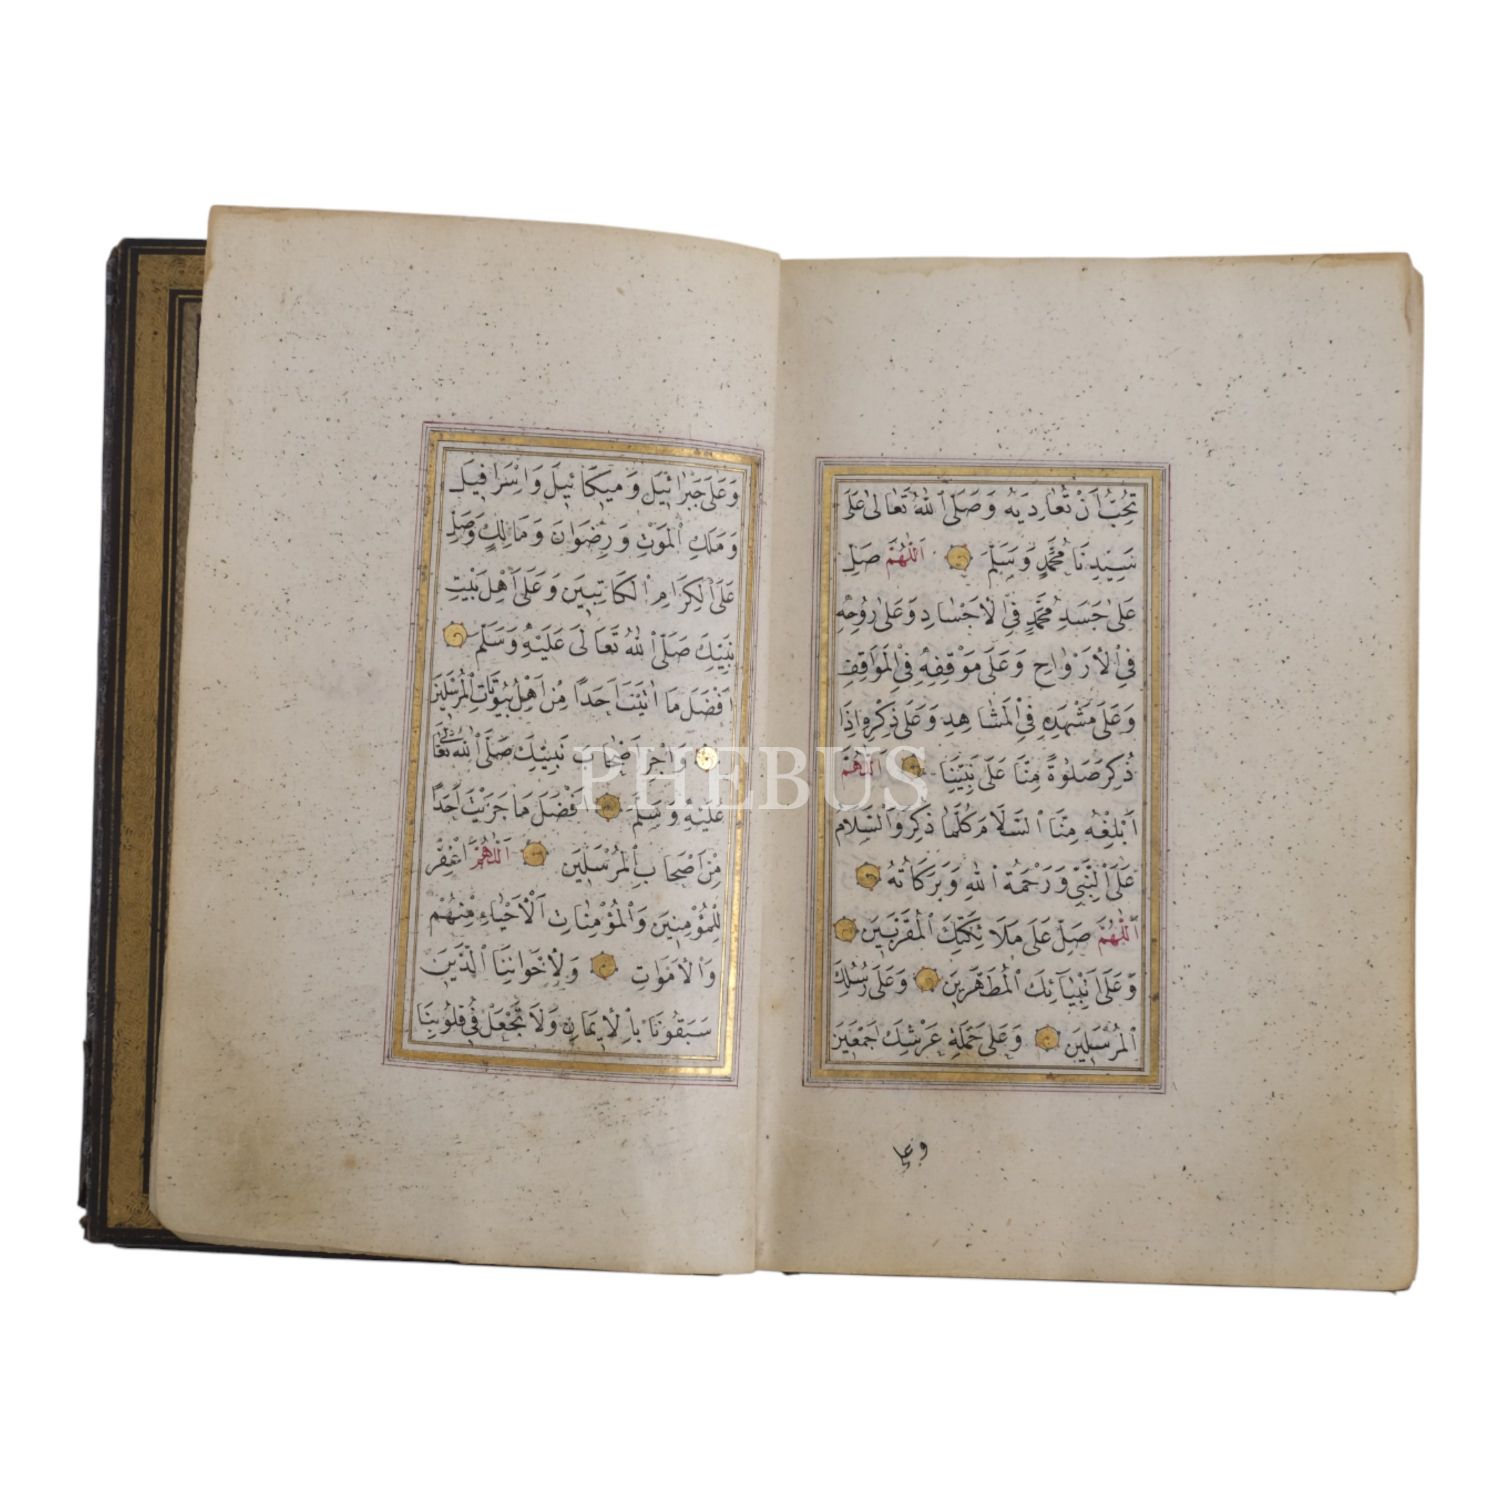 تُحِبُّ اَنْ تُعَادِيَهُ وَصَلَّى اللهُ تَعَالَى عَلَى
سَيِّدِنَا مُحَمَّدٍ وَسَلِّمْ اَللّٰهُمَّ صَلِّ
عَلَى جَسَدِ مُحَمَّدٍ فِي الْاَجْسَادِ وَعَلَى رُوحِهِ
فِي الْاَرْوَاحِ وَعَلَى مَوْقِفِهِ فِي الْمَوَاقِفِ
وَعَلَى مَشْهَدِهِ فِي الْمَشَاهِدِ وَعَلَى ذِكْرِهِ اِذَا
ذُكِرَ صَلٰوةً مِنَّا عَلَى نَبِيِّنَا اَللّٰهُمَّ
اَبْلِغْهُ مِنَّا السَّلَامَ كُلَّمَا ذُكِرَ وَالسَّلَامُ
عَلَى النَّبِيِّ وَرَحْمَةُ اللهِ وَبَرَكَاتُهُ
اَللّٰهُمَّ صَلِّ عَلَى مَلَائِكَتِكَ الْمُقَرَّبِينَ
وَعَلَى اَنْبِيَائِكَ الْمُطَهَّرِينَ وَعَلَى رُسُلِكَ
الْمُرْسَلِينَ وَعَلَى حَمَلَةِ عَرْشِكَ اَجْمَعِينَ
وعلى
وَعَلَى جَبْرَائِيلَ وَمِيكَائِيلَ وَاِسْرَافِيلَ
وَمَلَكِ الْمَوْتِ وَرِضْوَانَ وَمَالِكٍ وَصَلِّ
عَلَى الْكِرَامِ الْكَاتِبِينَ وَعَلَى اَهْلِ بَيْتِ
نَبِيِّكَ صَلَّى اللهُ تَعَالَى عَلَيْهِ وَسَلَّمَ
اَفْضَلَ مَا اٰتَيْتَ اَحَدًا مِنْ اَهْلِ بُيُوتَاتِ الْمُرْسَلِينَ
وَاجْزِ اَصْحَابَ نَبِيِّكَ صَلَّى اللهُ تَعَالَى
عَلَيْهِ وَسَلَّمَ اَفْضَلَ مَا جَزَيْتَ اَحَدًا
مِنْ اَصْحَابِ الْمُرْسَلِينَ اَللّٰهُمَّ اغْفِرْ
لِلْمُؤْمِنِينَ وَالْمُؤْمِنَاتِ الْاَحْيَاءِ مِنْهُمْ
وَالْاَمْوَاتِ وَلِاِخْوَانِنَا الَّذِينَ
سَبَقُونَا بِالْاِيمَانِ وَلَا تَجْعَلْ فِي قُلُوبِنَا
PHEBUS